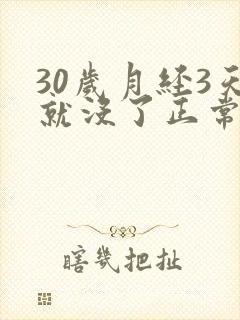 30歲月経3天
就没了正常
瞎幾把扯